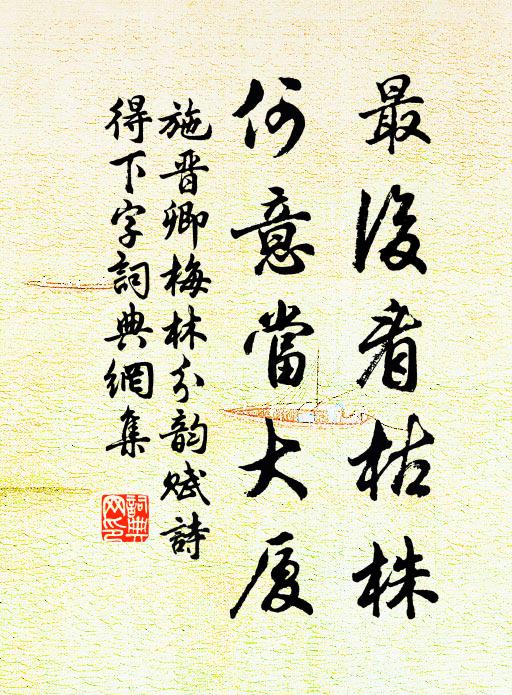 最後看枯株
何意當大厦
施晋卿梅林分韵賦詩
得下字詞典網集
詞典網印